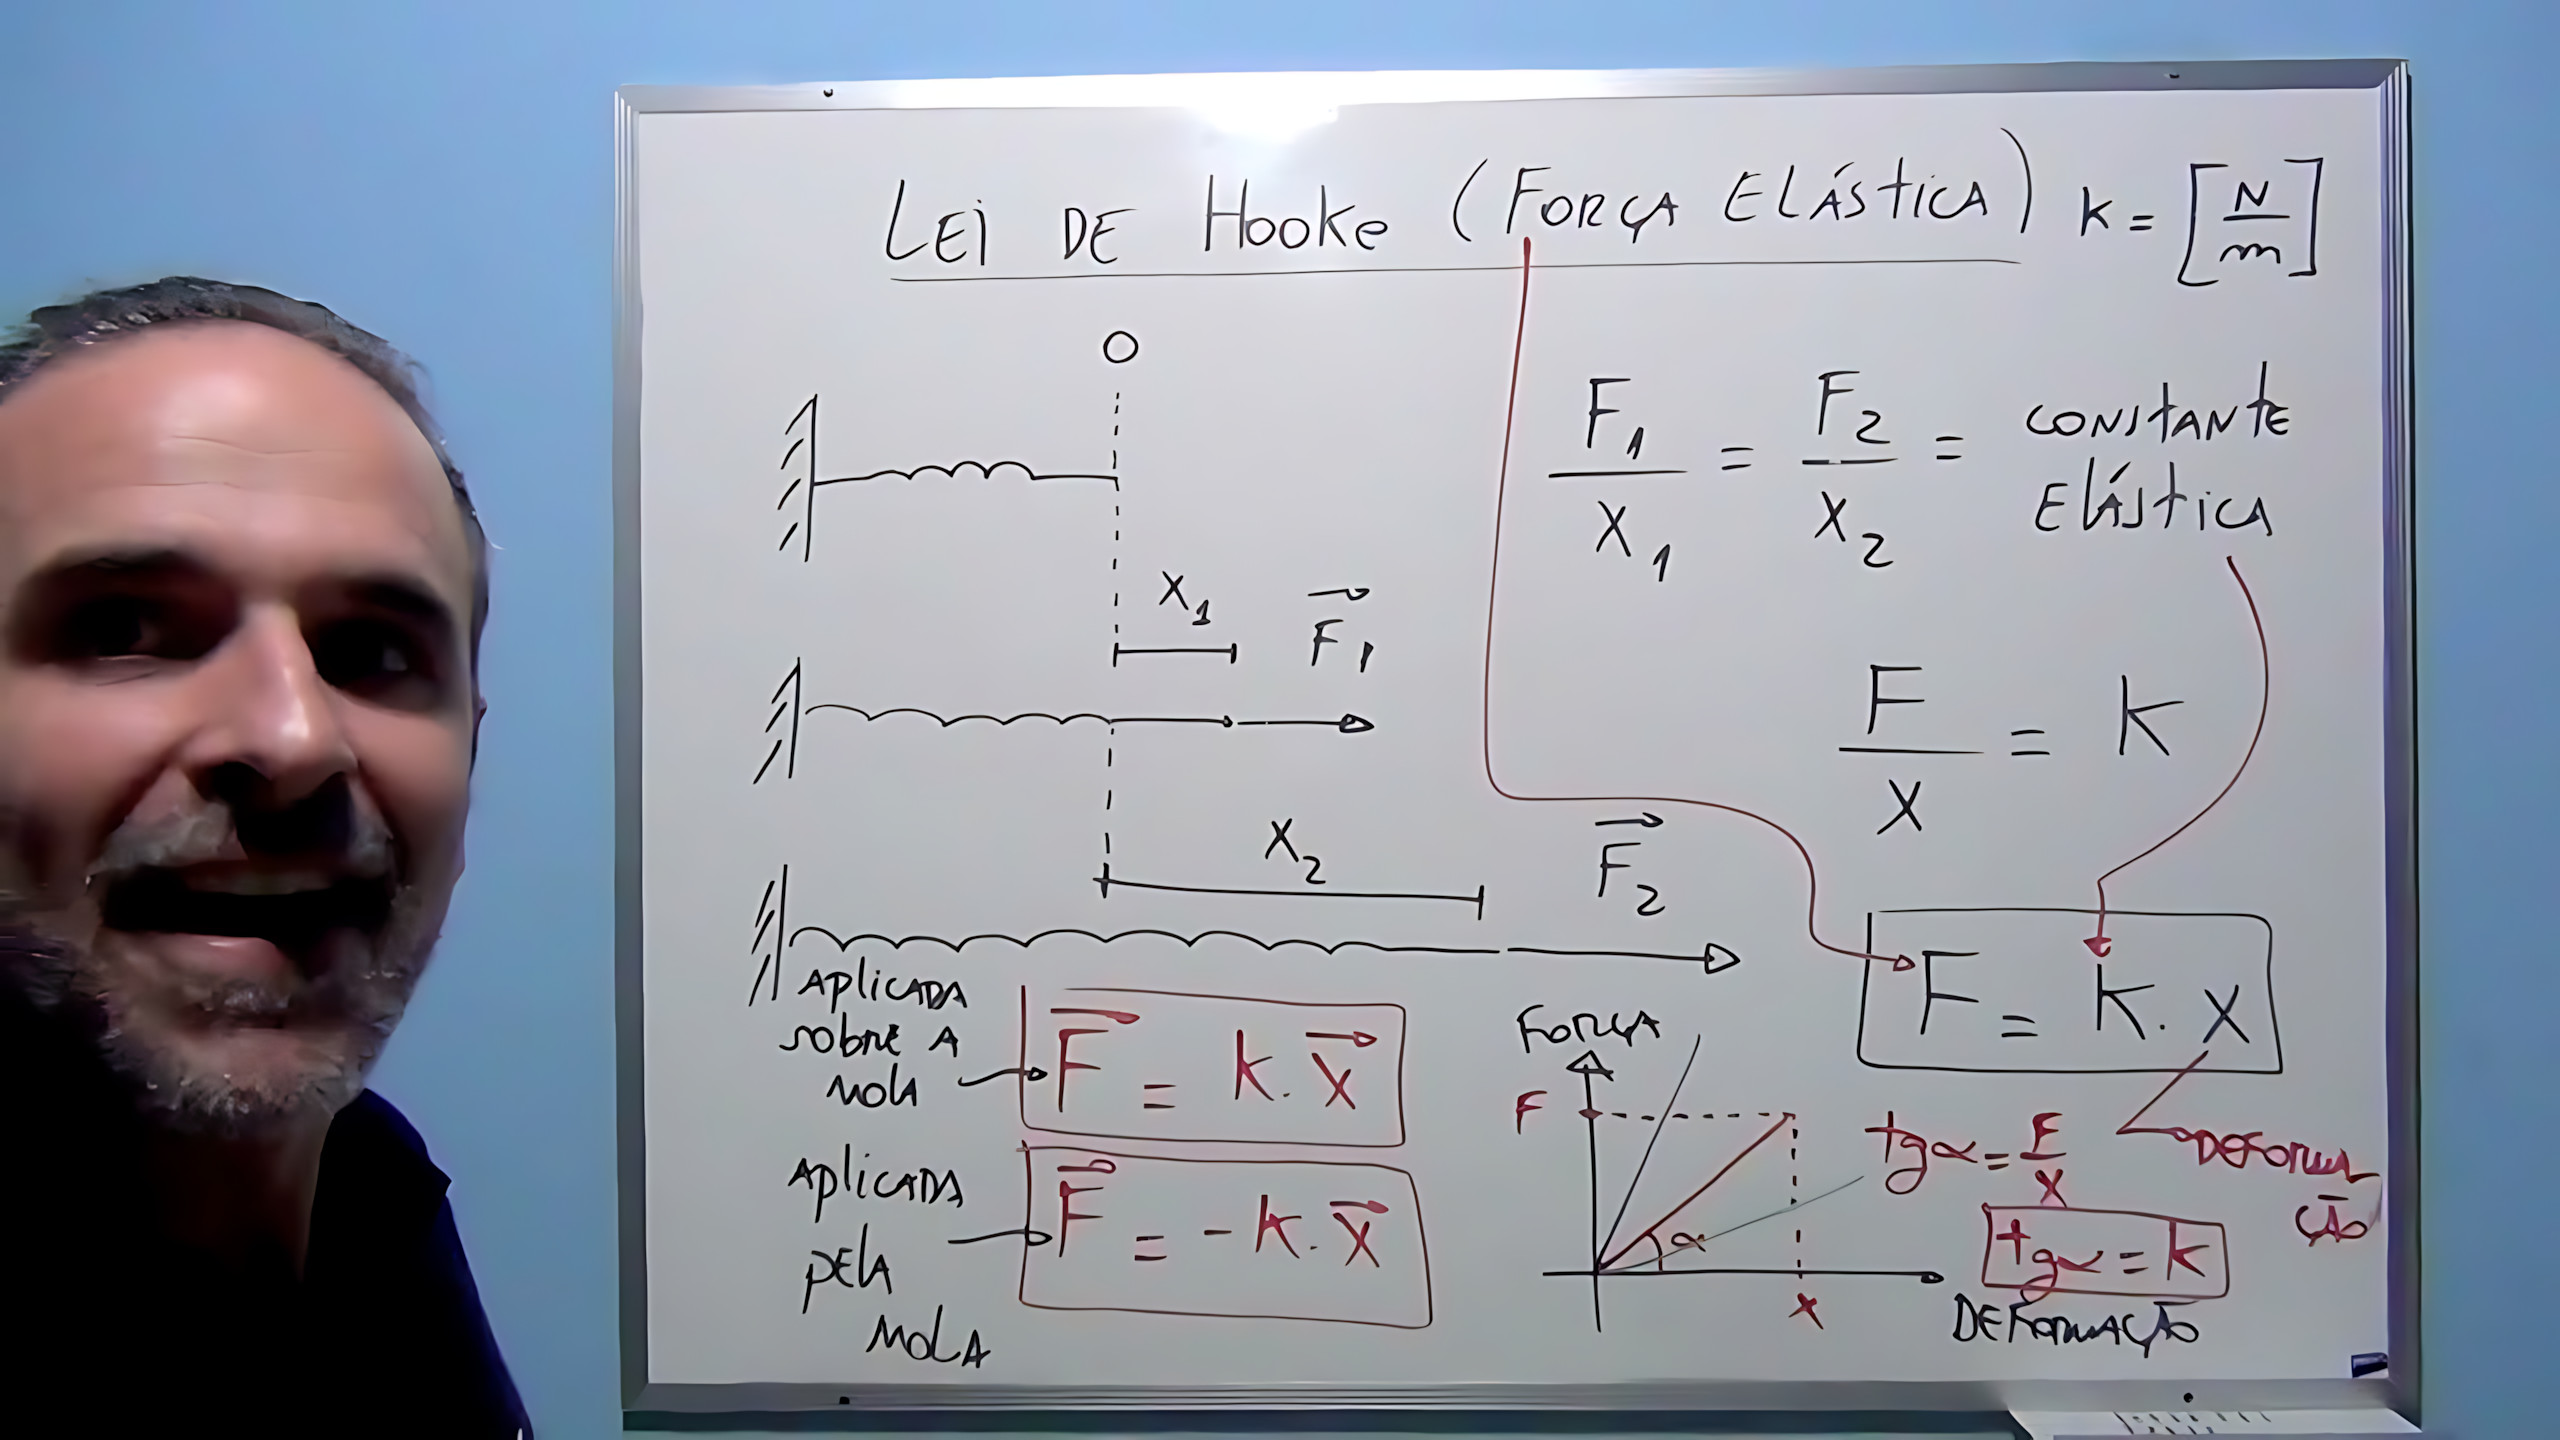 LEI DE Hooke (FORÇA ELÁSTICA) K = [N/m]
O
F1/X1 = F2/X2 = CONSTANTE ELÁSTICA
X1
F1
F/X = K
X2
F2
F = K. X
DEFORMAÇÃO
APLICADA
SOBRE A
MOLA
F = K. X
APLICADA
PELA
MOLA
F = - K. X
FORÇA
F
α
X
DEFORMAÇÃO
tgα = F/X
tgα = K